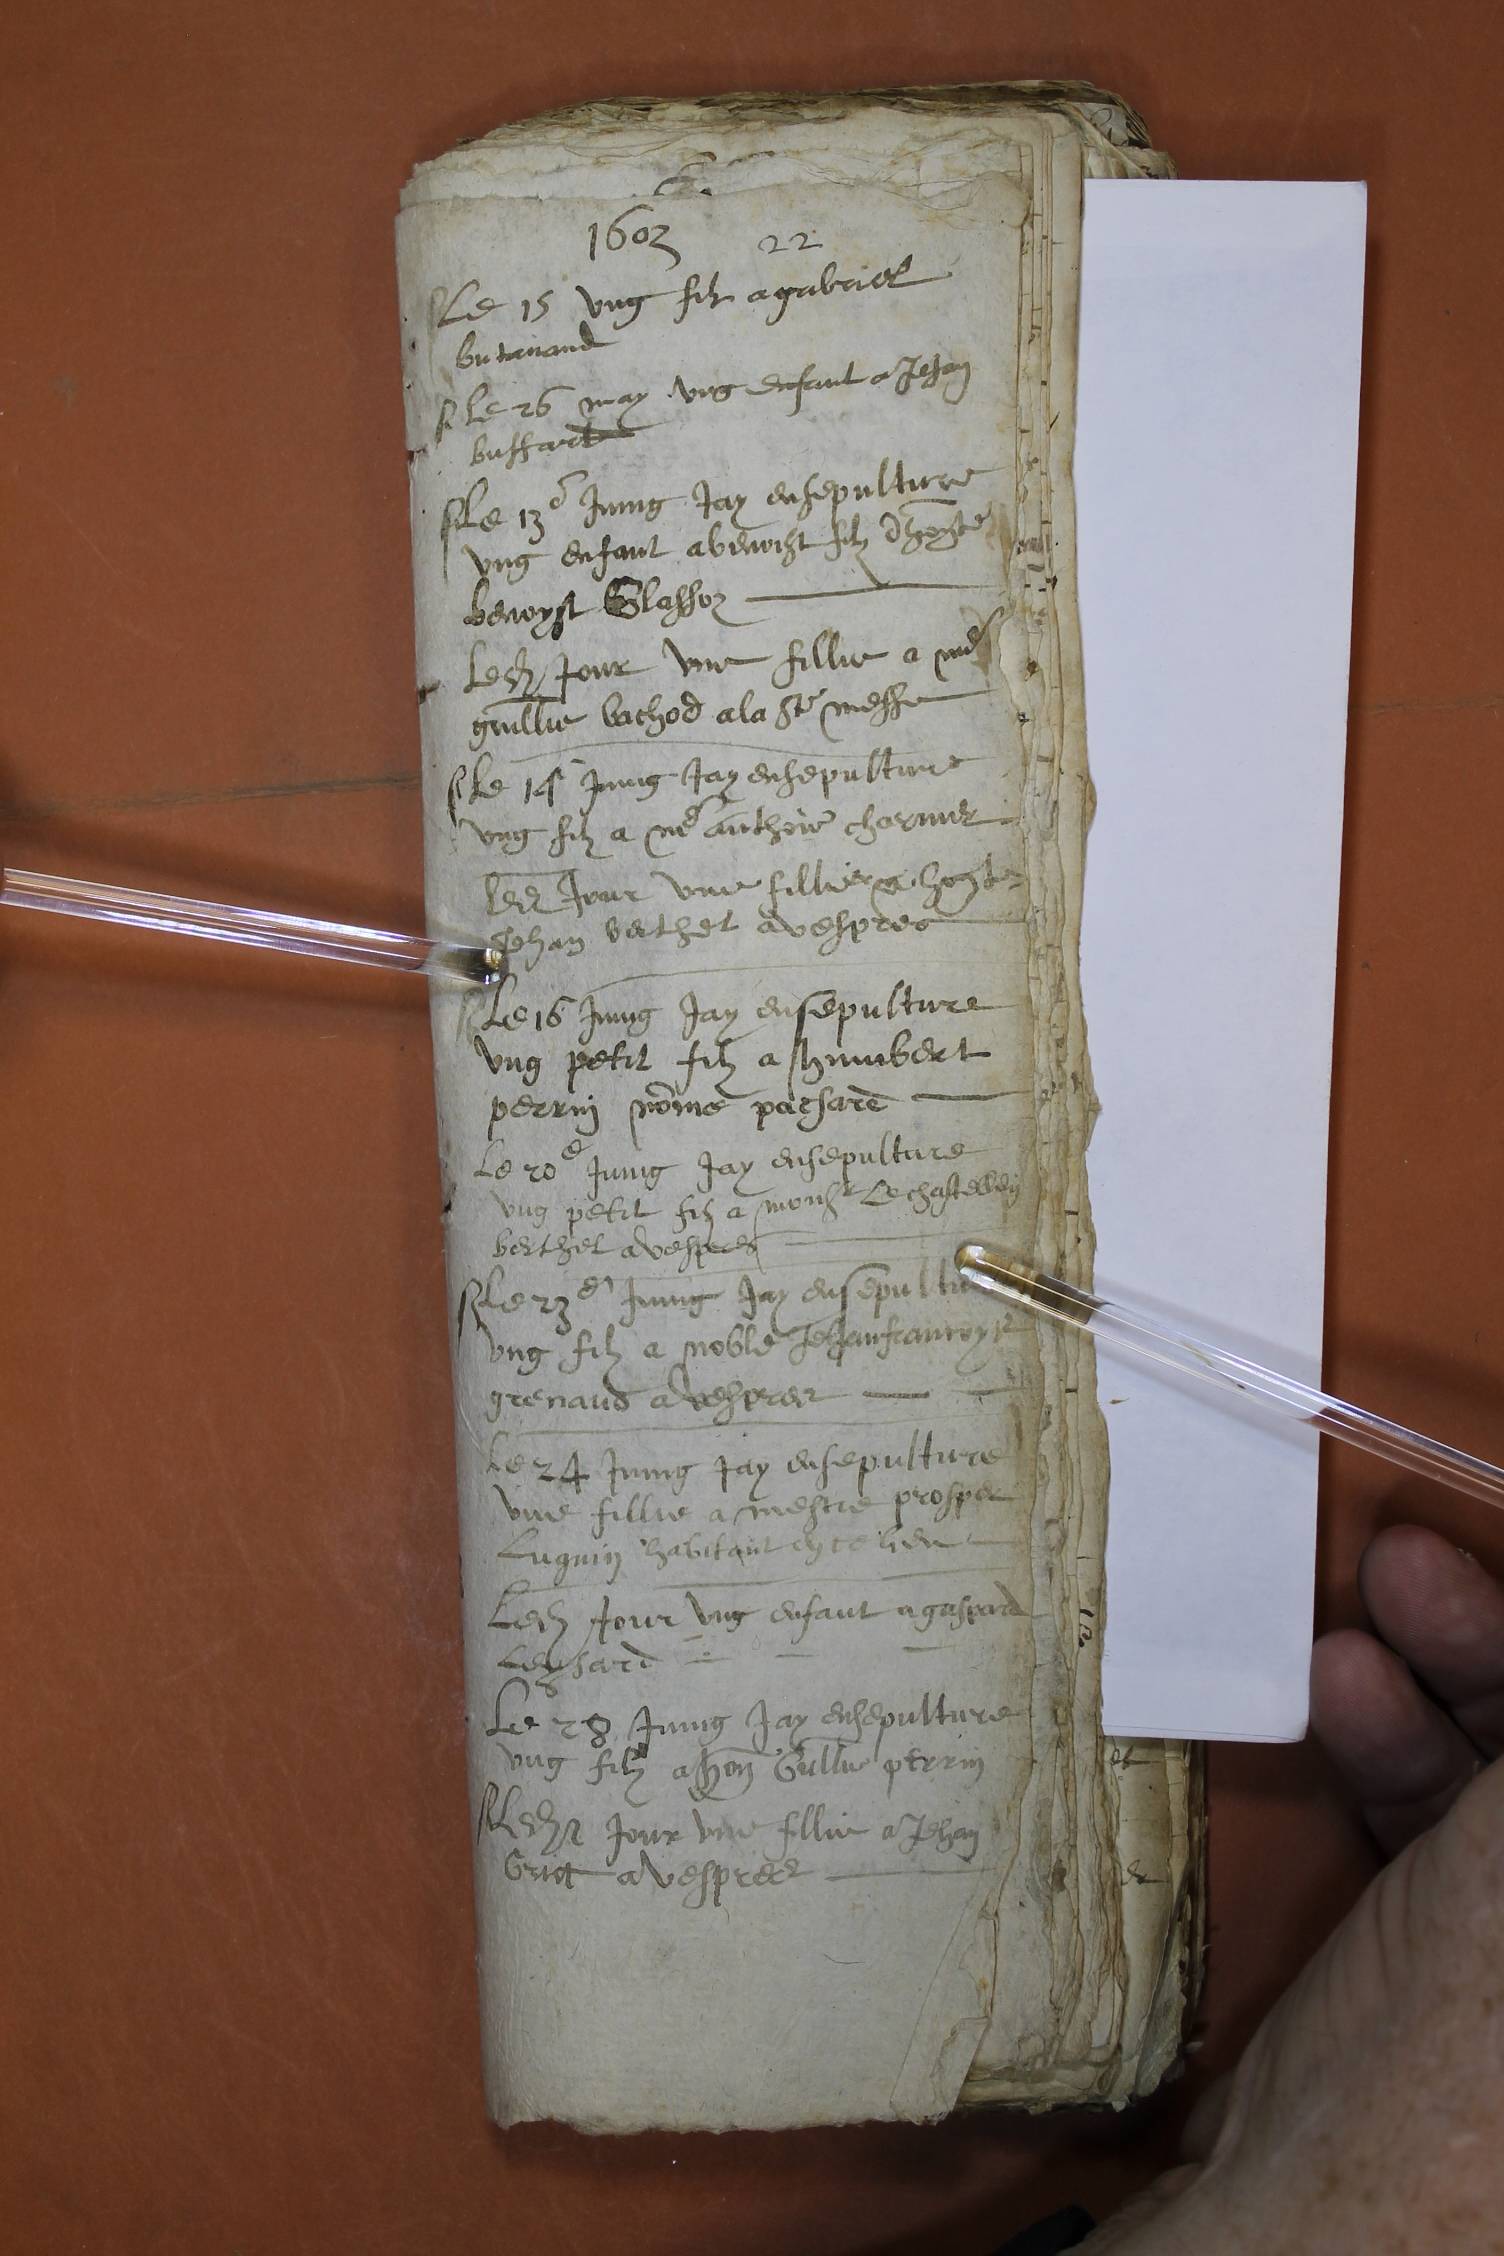 1603 22
Le 15 vng filz a gabriel
butauand
Le 26 may vng enfant a Jehan
buffard
Le 13e Juing Jay ensepulture
vng enfant a benoist filz dhoneste
benoyst
Led Jour vne fillie a me
guillie bachod a la ste messe
Le 14 Juing Jay ensepulture
vng filz a me anthoine
Led Jour vne fillie a honeste
Jehan berthet a vespres
Le 16 Juing Jay ensepulture
vng petit filz a humbert
perrin nome
Le 20e Juing Jay ensepulture
vng petit filz a monsr Le chastellain
berthet a vespres
Le 23e Juing Jay ensepulture
vng filz a noble Jehan francoys
grenaud a vespres
Le 24 Juing Jay ensepulture
vne fillie a mestre prosper
Luguin habitant en ce lieu
Led Jour vng enfant a gaspard
Leysard
Le 28 Juing Jay ensepulture
vng filz a hon Guillie perrin
Led Jour vne fillie a Jehan
a vespres